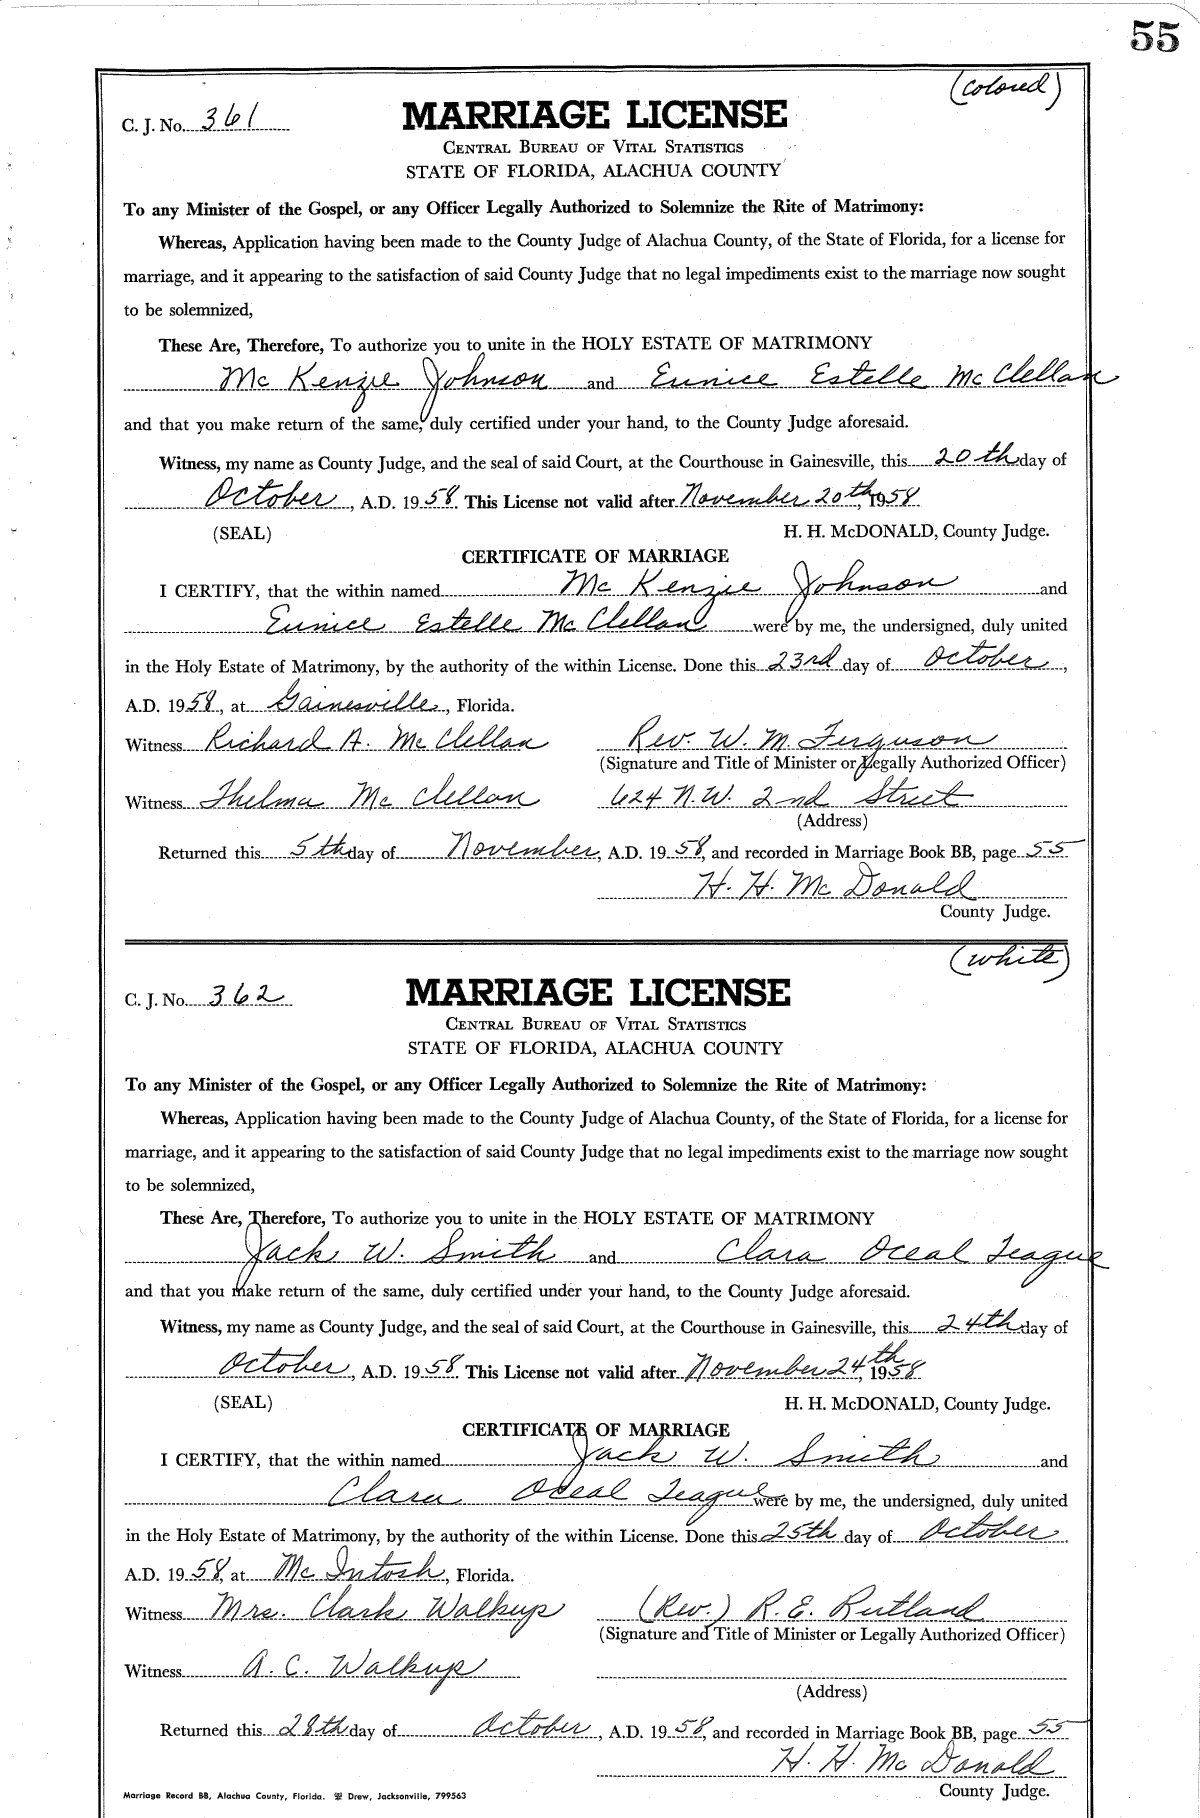 55
(colored)
C. J. No. 361
MARRIAGE LICENSE
CENTRAL BUREAU OF VITAL STATISTICS
STATE OF FLORIDA, ALACHUA COUNTY
To any Minister of the Gospel, or any Officer Legally Authorized to Solemnize the Rite of Matrimony:
Whereas, Application having been made to the County Judge of Alachua County, of the State of Florida, for a license for
marriage, and it appearing to the satisfaction of said County Judge that no legal impediments exist to the marriage now sought
to be solemnized,
These Are, Therefore, To authorize you to unite in the HOLY ESTATE OF MATRIMONY
Mc Kenzie Johnson and Eunice Estelle McClellan
and that you make return of the same, duly certified under your hand, to the County Judge aforesaid.
Witness, my name as County Judge, and the seal of said Court, at the Courthouse in Gainesville, this 20th day of
October, A.D. 1958. This License not valid after November 20th, 1958
(SEAL) H. H. McDONALD, County Judge.
CERTIFICATE OF MARRIAGE
I CERTIFY, that the within named Mc Kenzie Johnson and
Eunice Estelle McClellan were by me, the undersigned, duly united
in the Holy Estate of Matrimony, by the authority of the within License. Done this 23rd day of October,
A.D. 1958, at Gainesville, Florida.
Witness Richard A. McClellan Rev. W. M. Ferguson
(Signature and Title of Minister or Legally Authorized Officer)
Witness Thelma McClellan 624 N.W. 2nd Street
(Address)
Returned this 5th day of November, A.D. 1958, and recorded in Marriage Book BB, page 55
H. H. McDonald
County Judge.
(white)
C. J. No. 362
MARRIAGE LICENSE
CENTRAL BUREAU OF VITAL STATISTICS
STATE OF FLORIDA, ALACHUA COUNTY
To any Minister of the Gospel, or any Officer Legally Authorized to Solemnize the Rite of Matrimony:
Whereas, Application having been made to the County Judge of Alachua County, of the State of Florida, for a license for
marriage, and it appearing to the satisfaction of said County Judge that no legal impediments exist to the marriage now sought
to be solemnized,
These Are, Therefore, To authorize you to unite in the HOLY ESTATE OF MATRIMONY
Jack W. Smith and Clara Oceal Teague
and that you make return of the same, duly certified under your hand, to the County Judge aforesaid.
Witness, my name as County Judge, and the seal of said Court, at the Courthouse in Gainesville, this 24th day of
October, A.D. 1958. This License not valid after November 24th, 1958
(SEAL) H. H. McDONALD, County Judge.
CERTIFICATE OF MARRIAGE
I CERTIFY, that the within named Jack W. Smith and
Clara Oceal Teague were by me, the undersigned, duly united
in the Holy Estate of Matrimony, by the authority of the within License. Done this 25th day of October.
A.D. 1958, at McIntosh, Florida.
Witness Mrs. Clark Walkup (Rev.) R. E. Rutland
(Signature and Title of Minister or Legally Authorized Officer)
Witness A. C. Walkup
(Address)
Returned this 28th day of October, A.D. 1958, and recorded in Marriage Book BB, page 55
H. H. McDonald
County Judge.
Marriage Record BB, Alachua County, Florida. Drew, Jacksonville, 799563